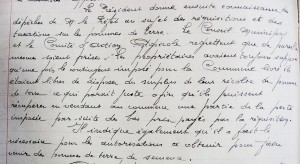 Le Président donne ensuite connaissance de
dépêches de M. le Préfet au sujet des réquisitions et des
taxation sur les pommes de terre. Le Conseil Municipal
et le Comité d'action Agricole regrettent que de pareilles
mesures soient prises. Les propriétaires avaient toujours supposé
qu'une fois le contingent imposé pour la Commune livré ils
étaient libres de disposer du surplus de leur récolte de pommes
de terre ce qui paraît juste afin qu'ils puissent
récupérer en vendant au commerce une partie de la perte
imposée par suite des bas prix payés par la réquisition.
Il indique également qu'il a fait le
nécessaire pour les autorisations à obtenir pour faire
venir des pommes de terre de semence.